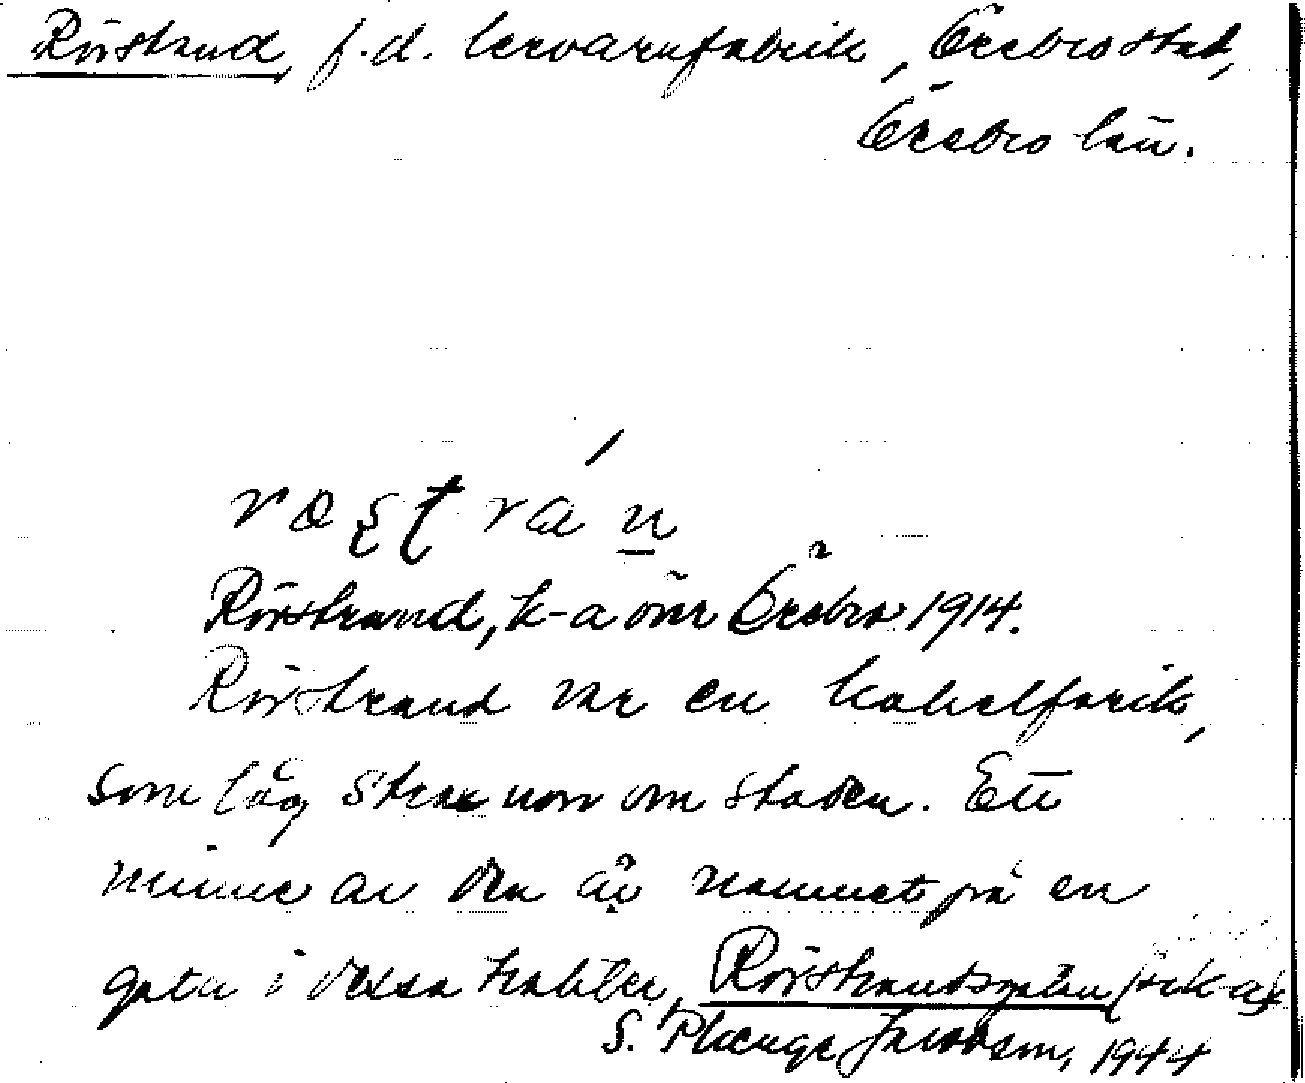 Rörstrand, f.d. lervarufabrik, Örebro stad,
Örebro län.
røʂʈrán
Rörstrand, k-a över Örebro 1914.
Rörstrand var en kakelfarik,
som låg strax norr om staden. Ett
minne av den är namnet på en
gata i dessa trakter, Rörstrandsgatan
S. Plænge Jacobson, 1944